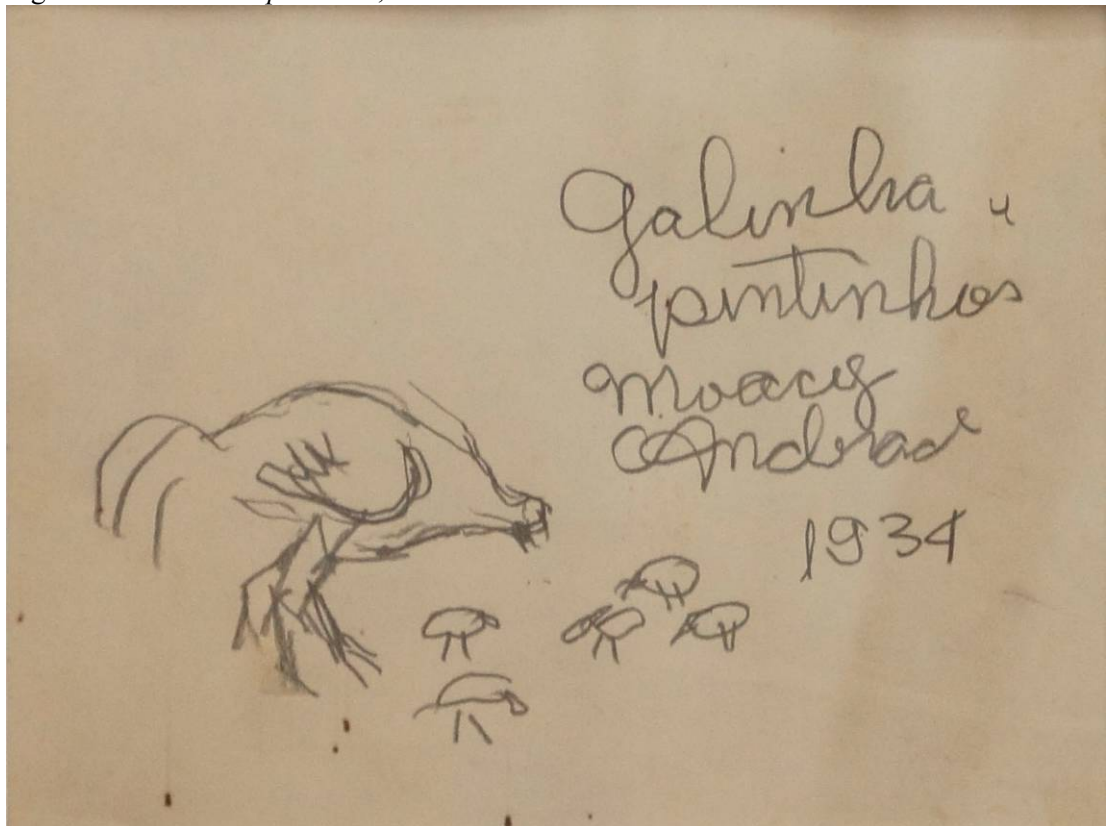 Galinha e
pintinhos
Moacyr
Andrade
1934